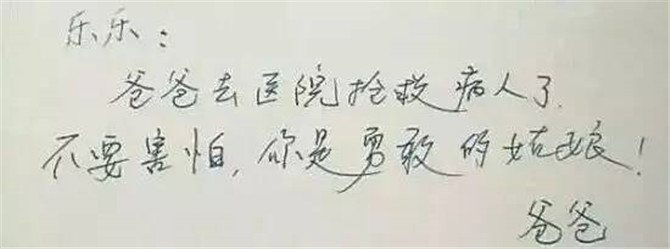 乐乐：
爸爸去医院抢救病人了.
不要害怕,你是勇敢的姑娘！
爸爸